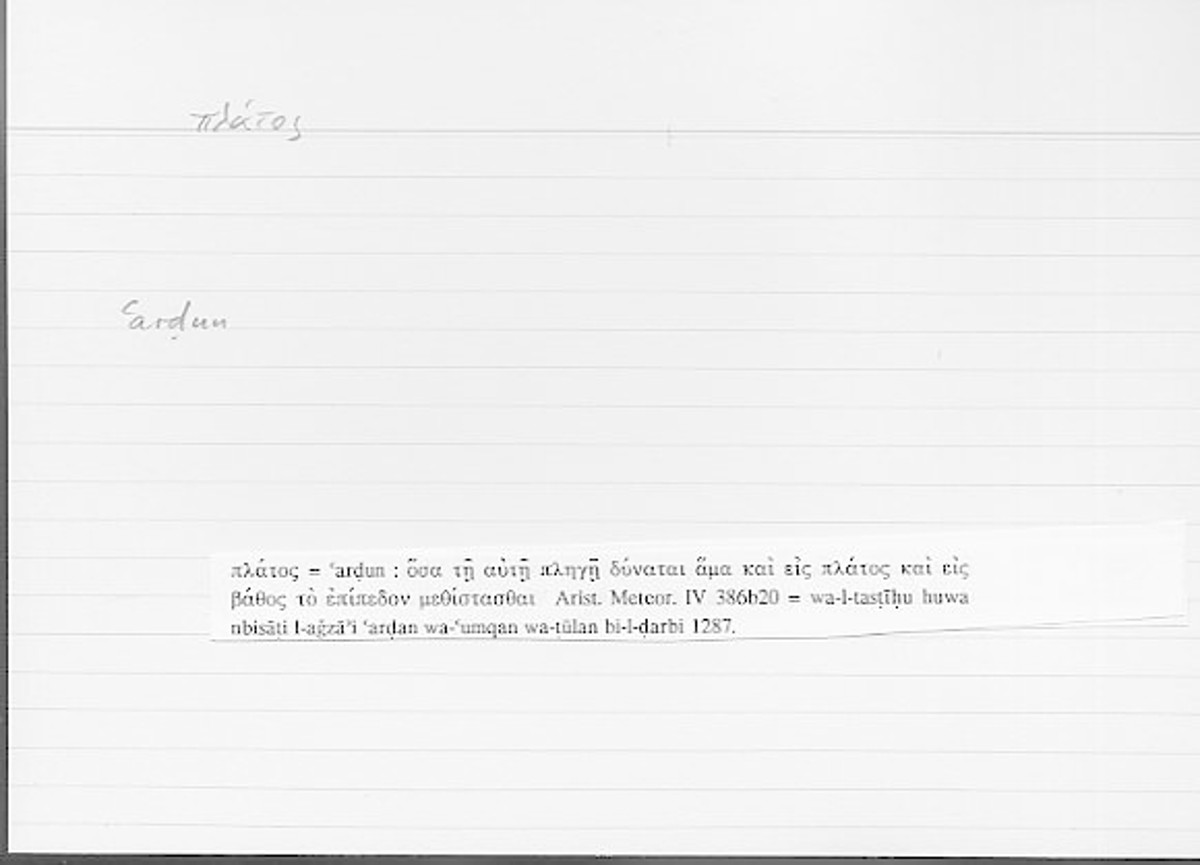 πλάτος
ʿarḍun
πλάτος = ʿarḍun : ὅσα τῇ αὐτῇ πληγῇ δύναται ἅμα καὶ εἰς πλάτος καὶ εἰς
βάθος τὸ ἐπίπεδον μεθίστασθαι Arist. Meteor. IV 386b20 = wa-l-tasṭīḥu huwa
nbisāṭi l-aǧzāʾi ʿarḍan wa-ʿumqan wa-ṭūlan bi-l-ḍarbi 1287.